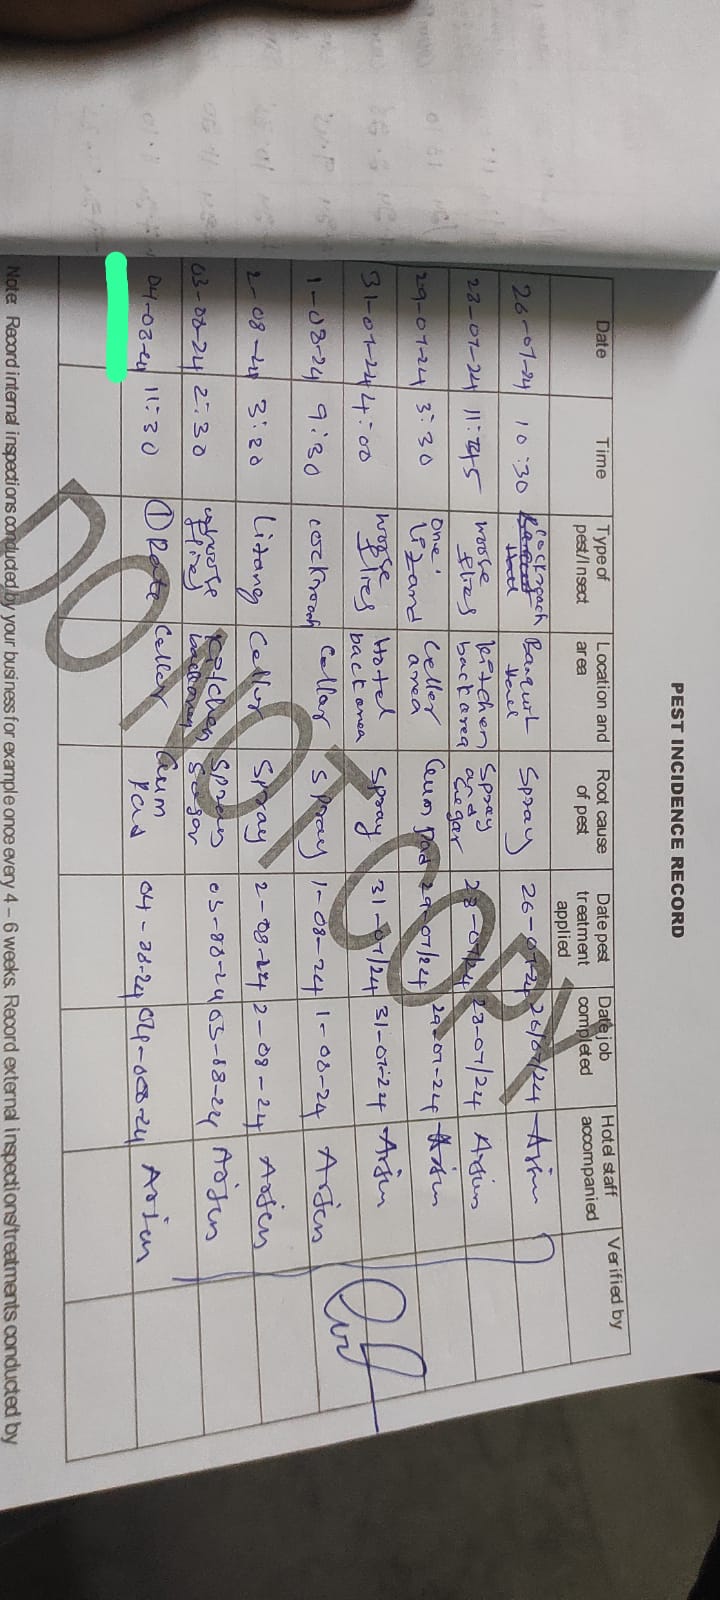 PEST INCIDENCE RECORD
Date Time Type of pest/Insect Location and area Root cause of pest Date pest treatment applied Date job completed Hotel staff accompanied Verified by
26-07-24 10:30 Banquet Spray 26-07-24 26/07/24
28-07-24 11:45 flies Kitchen back area Spray and 28-07/24 28-07/24 Arjun
29-07-24 3:30 one Lizard Celler area Gum Pad 29-07/24 29-07-24 Arjun
31-07-24 4:00 flies Hotel back area Spray 31-07/24 31-07-24 Arjun
1-08-24 9:30 Cellar Spray 1-08-24 1-08-24 Arjun
2-08-24 3:20 Celler Spray 2-08-24 2-08-24 Arjun
03-08-24 2:30 flies Kitchen Spray 03-08-24 03-08-24 Arjun
04-08-24 11:30 ① Rate Celler Gum Pad 04-08-24 04-08-24 Arjun
DO NOT COPY
Note: Record internal inspections conducted by your business for example once every 4 – 6 weeks. Record external inspections/treatments conducted by